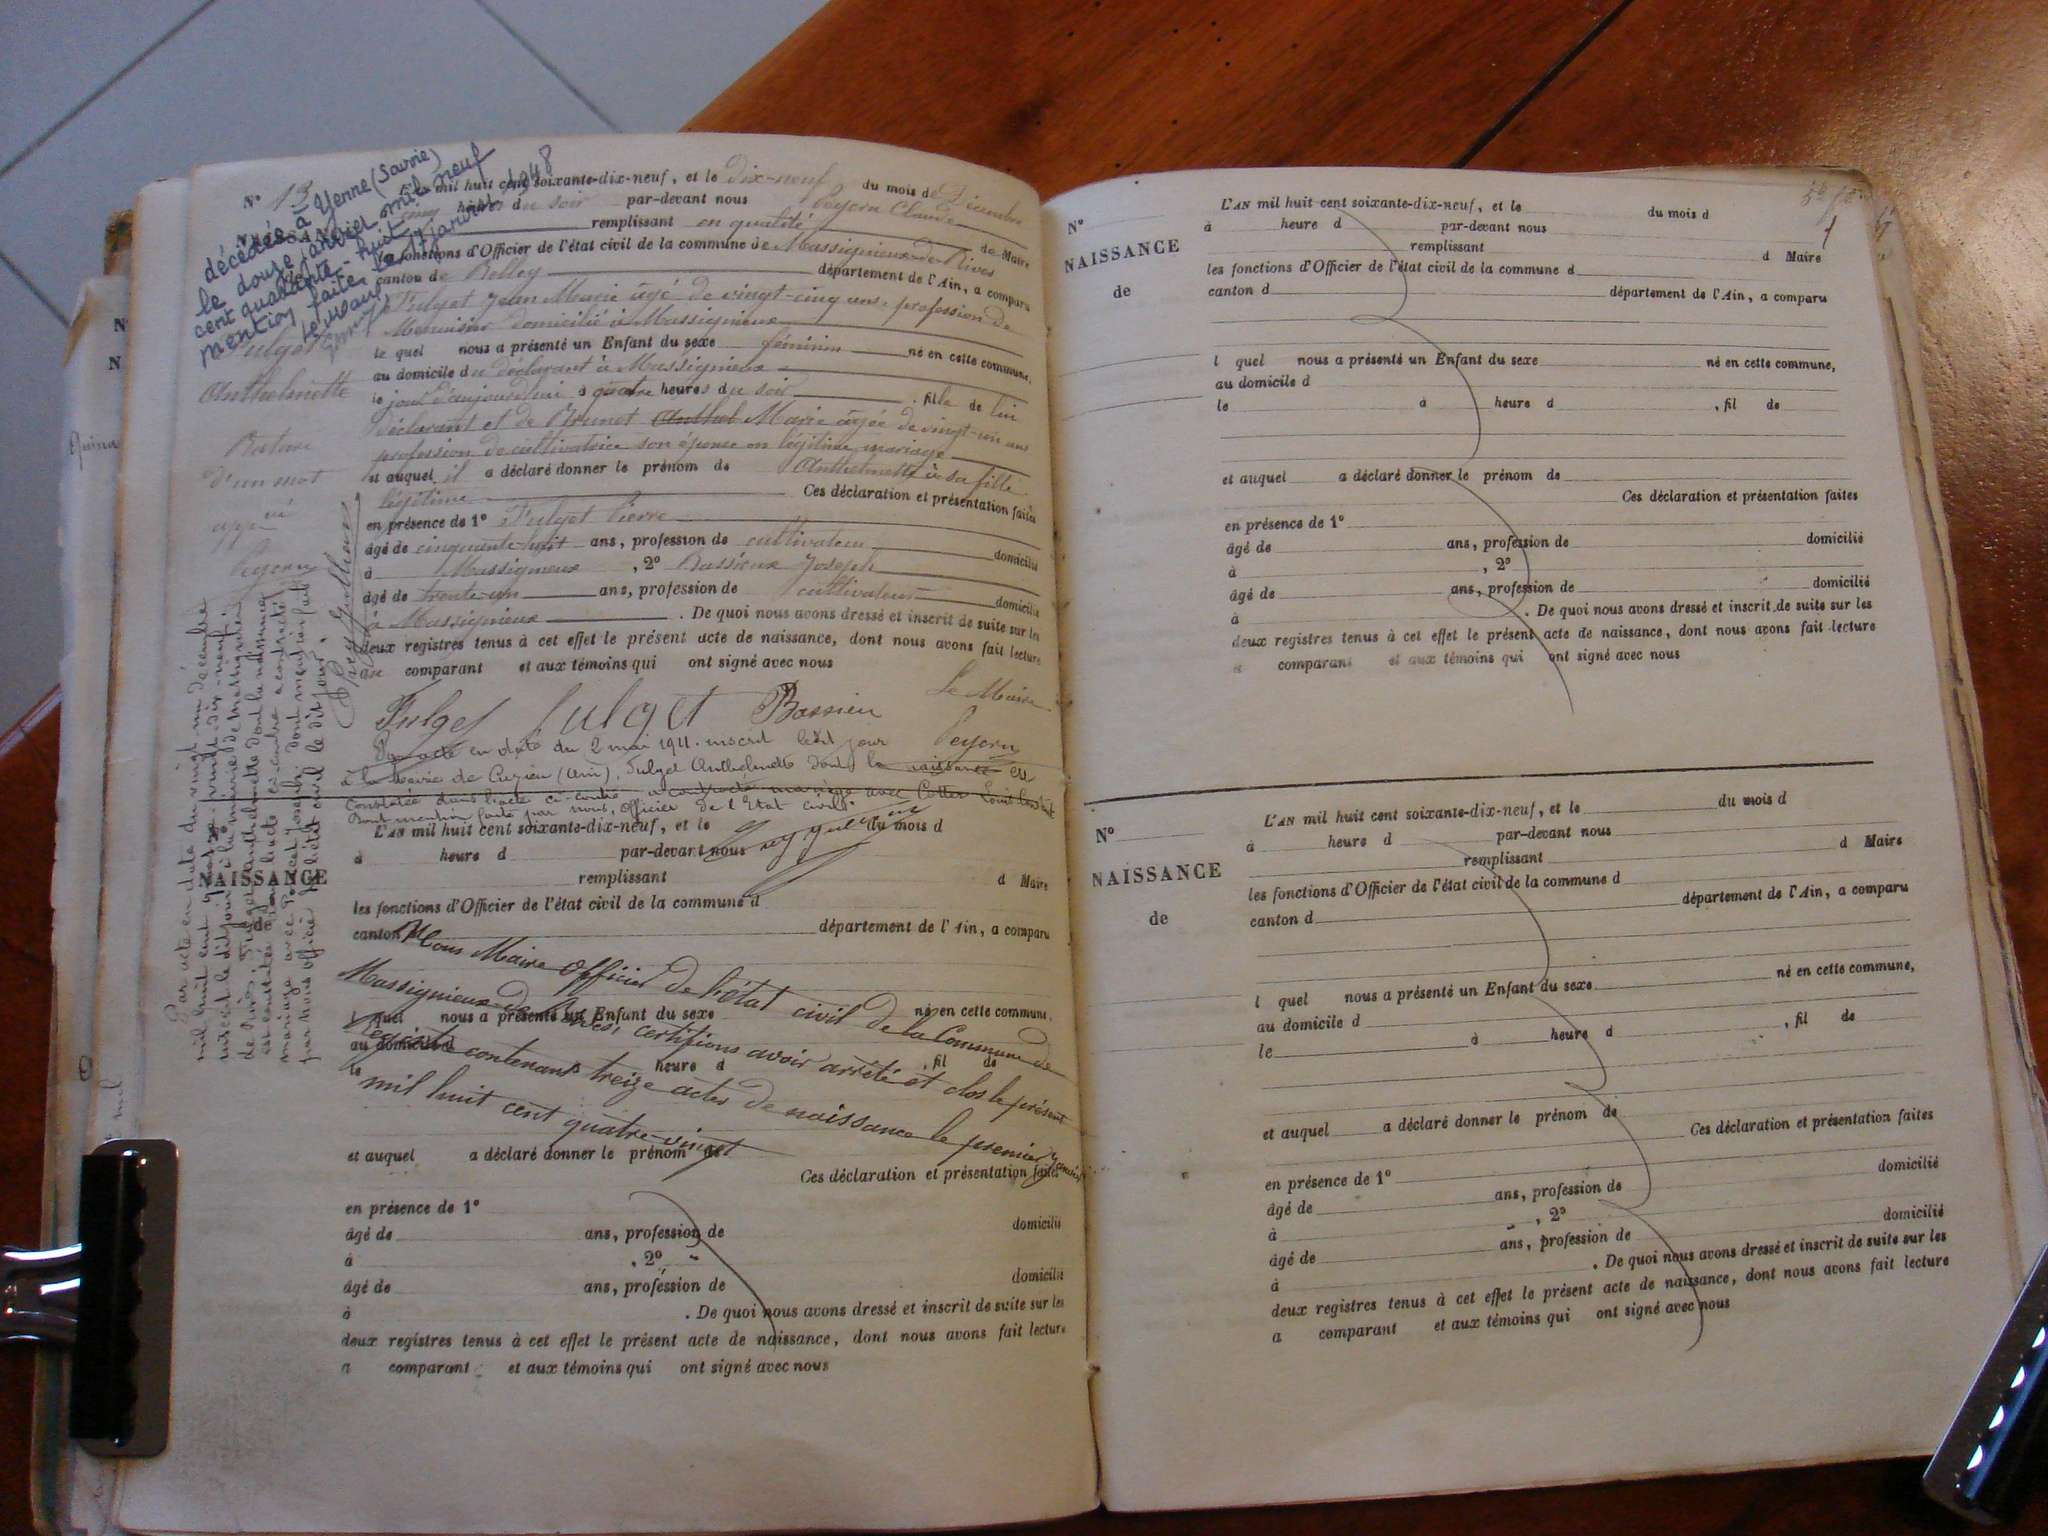 N° 13
L'AN mil huit cent soixante-dix-neuf, et le dix-neuf du mois de Décembre
à cinq heures du soir par-devant nous Peyern Claude
remplissant en qualité de Maire
les fonctions d'Officier de l'état civil de la commune de Massignieu-de-Rives
canton de Belley département de l'Ain, a comparu
Fulget Jean Marie âgé de vingt-cinq ans, profession de
Menuisier domicilié à Massignieu
le quel nous a présenté un Enfant du sexe féminin né en cette commune,
au domicile du déclarant à Massignieu
le jour d'aujourdhui à quatre heures du soir, fille de lui
déclarant et de Brunet Anthel Marie âgée de vingt-un ans
profession de cultivatrice son épouse en légitime mariage
et auquel il a déclaré donner le prénom de Anthelmette à sa fille
légitime Ces déclaration et présentation faites
en présence de 1° Fulget Pierre
âgé de cinquante-huit ans, profession de cultivateur domicilié
à Massignieux, 2° Bassieux Joseph
âgé de trente-un ans, profession de cultivateur domicilié
à Massignieux. De quoi nous avons dressé et inscrit de suite sur les
deux registres tenus à cet effet le présent acte de naissance, dont nous avons fait lecture
au comparant et aux témoins qui ont signé avec nous
Le Maire
Fulget Fulget Bassieu
Peyern
décédée à Yenne (Savoie)
le douze janvier mil neuf
cent quarante-huit
mention faite le 17 janvier 1948
NAISSANCE
Fulget
Anthelmette
Rature
d'un mot
Peyern
Par acte en date du vingt un décembre
mil huit cent quatre-vingt-dix-neuf
inscrit le dit jour à la mairie de Massignieu
de Rives, Fulget Anthelmette dont la naissance
est constatée dans l'acte ci-contre a contracté
mariage avec Pocat Joseph, dont mention faite
par nous officier de l'état civil le dit jour.
Par acte en date du 2 mai 1911. inscrit ledit jour
à la Mairie de Cuzieu (Ain), Fulget Anthelmette dont la naissance est
constatée dans l'acte ci-contre a contracté mariage avec Cotter Louis
Dont mention faite par nous, Officier de l'Etat civil.
L'AN mil huit cent soixante-dix-neuf, et le du mois d
à heure d par-devant nous
NAISSANCE
de
remplissant d Maire
les fonctions d'Officier de l'état civil de la commune d
canton d département de l'Ain, a comparu
Nous Maire Officier de l'état civil de la Commune de
Massignieux-de-Rives, certifions avoir arrêté et clos le présent
registre contenant treize actes de naissance le premier Janvier
mil huit cent quatre-vingt
l quel nous a présenté un Enfant du sexe né en cette commune,
au domicile d
le heure d , fil de
et auquel a déclaré donner le prénom de
Ces déclaration et présentation faites
en présence de 1°
âgé de ans, profession de domicilié
à , 2°
âgé de ans, profession de domicilié
à . De quoi nous avons dressé et inscrit de suite sur les
deux registres tenus à cet effet le présent acte de naissance, dont nous avons fait lecture
a comparant et aux témoins qui ont signé avec nous
N°
NAISSANCE
de
L'AN mil huit cent soixante-dix-neuf, et le du mois d
à heure d par-devant nous
remplissant d Maire
les fonctions d'Officier de l'état civil de la commune d
canton d département de l'Ain, a comparu
l quel nous a présenté un Enfant du sexe né en cette commune,
au domicile d
le à heure d , fil de
et auquel a déclaré donner le prénom de
Ces déclaration et présentation faites
en présence de 1°
âgé de ans, profession de domicilié
à , 2°
âgé de ans, profession de domicilié
à . De quoi nous avons dressé et inscrit de suite sur les
deux registres tenus à cet effet le présent acte de naissance, dont nous avons fait lecture
a comparant et aux témoins qui ont signé avec nous
N°
NAISSANCE
de
L'AN mil huit cent soixante-dix-neuf, et le du mois d
à heure d par-devant nous
remplissant d Maire
les fonctions d'Officier de l'état civil de la commune d
canton d département de l'Ain, a comparu
l quel nous a présenté un Enfant du sexe né en cette commune,
au domicile d
le à heure d , fil de
et auquel a déclaré donner le prénom de
Ces déclaration et présentation faites
en présence de 1°
âgé de ans, profession de domicilié
à , 2°
âgé de ans, profession de domicilié
à . De quoi nous avons dressé et inscrit de suite sur les
deux registres tenus à cet effet le présent acte de naissance, dont nous avons fait lecture
a comparant et aux témoins qui ont signé avec nous